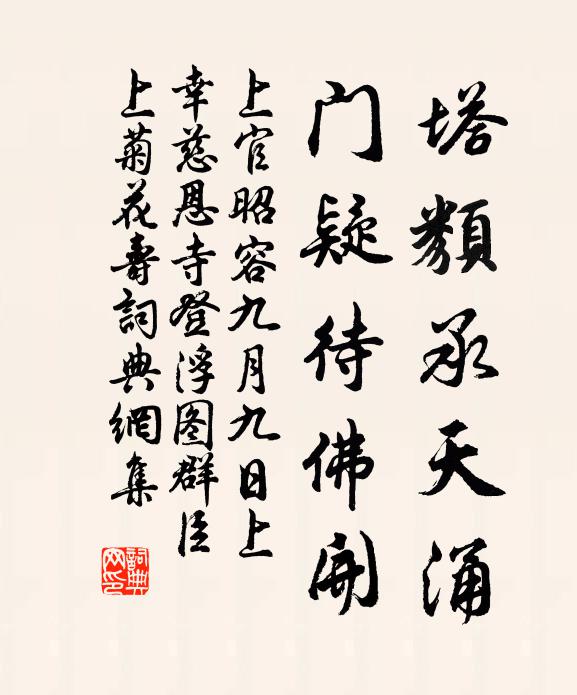 塔類承天涌
門疑待佛開
上官昭容九月九日上
幸慈恩寺登浮图群臣
上菊花壽詞典網集
詞典网印